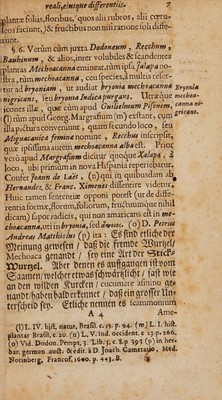 reali, eiusque differentiis. 7
plantæ foliis, floribus, quos alii rubros, alii cœru-
leos faciunt, & fructibus non nisi ratione soli diffe-
runt.
§ 6. Verùm cùm juxta Dodonæum, Recchum,
Bauhinum, & alios, inter volubiles & scandentes
plantas Mechoacanna emineat, cum ipsa jalapa no-
stra, tùm mechoacanna, ceu species, à multis refer-
tur ad bryoniam, ut audiat bryonia mechoacanna
nigricans, seu bryonia Indica purgans. Utriusque
icones illæ, quæ cùm apud Guilielmum Pisonem,
(l) tùm apud Georg. Margrafium (m) exstant, cum
illa pictura conveniunt, quam secundo loco, seu
Mexuacanica femina nomine, Recchus inscripsit,
quæ ipsissima autem mechoacanna alba est. Prio-
re verò apud Margrafium dicitur quoque Xalapa, à
loco, ubi primùm in nova Hispania reperiebatur.
Confer Joann. de Laët, (n) qui in quibusdam ab
Hernandez, & Franc. Ximenes dissentire videtur.
Huic tamen sententiæ opponi potest (ut de differ-
entia formæ, florum, foliorum, fructuumque nihil
dicam) sapor radicis, qui non amaricans est in me-
chœacanna, uti in bryonia, sed (o) D. Petrus
Andreas Matthiolus (n) ita: Es sind etliche der
Meinung gewesen / daß die fremde Wurtzel /
Mechoaca genandt / sey eine Art der Stick-
Wurtzel. Aber denen es auffgangen ist vom
Saamen / welcher etwas schwärtzlicht / fast wie
an den wilden Kurcken / cucumere asinino ge-
nandt / haben dafür gehalten / daß ein grosser Un-
terscheid sey. Etliche nennen es scammonium
A 4 Ame-
Bryonia
mechoa-
canna ni-
gricans.
(l) L. IV. hist. natur. Brasil. c. 53. p. 94. (m) L. I. hist.
plantar Brasil. c. 20. (n) L. V. Ind. occident. c. 23. p. 266,
(o) Vid. Dodon. Pempt. 3. Lib. 3. c. 8. p. 397 (p) in her-
bar. german. auct. & edit. à D. Joach. Camerario, Med.
Norinberg. Francof. 1600. p. 443. B.